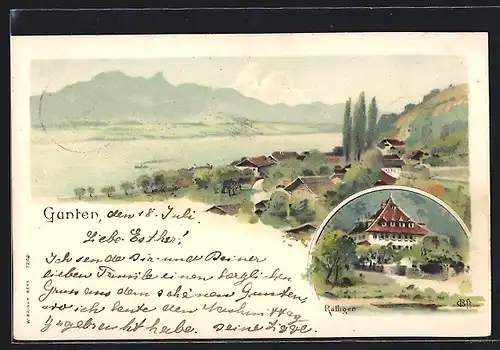 Gunten, den 18. Juli
Liebe Esther!
Ich sende Dir und Deiner
lieben Familie einen herzlichen
Gruss aus dem schönen Gunten,
wo ich heute den Nachmittag
zugebracht habe. Deine
Ralligen